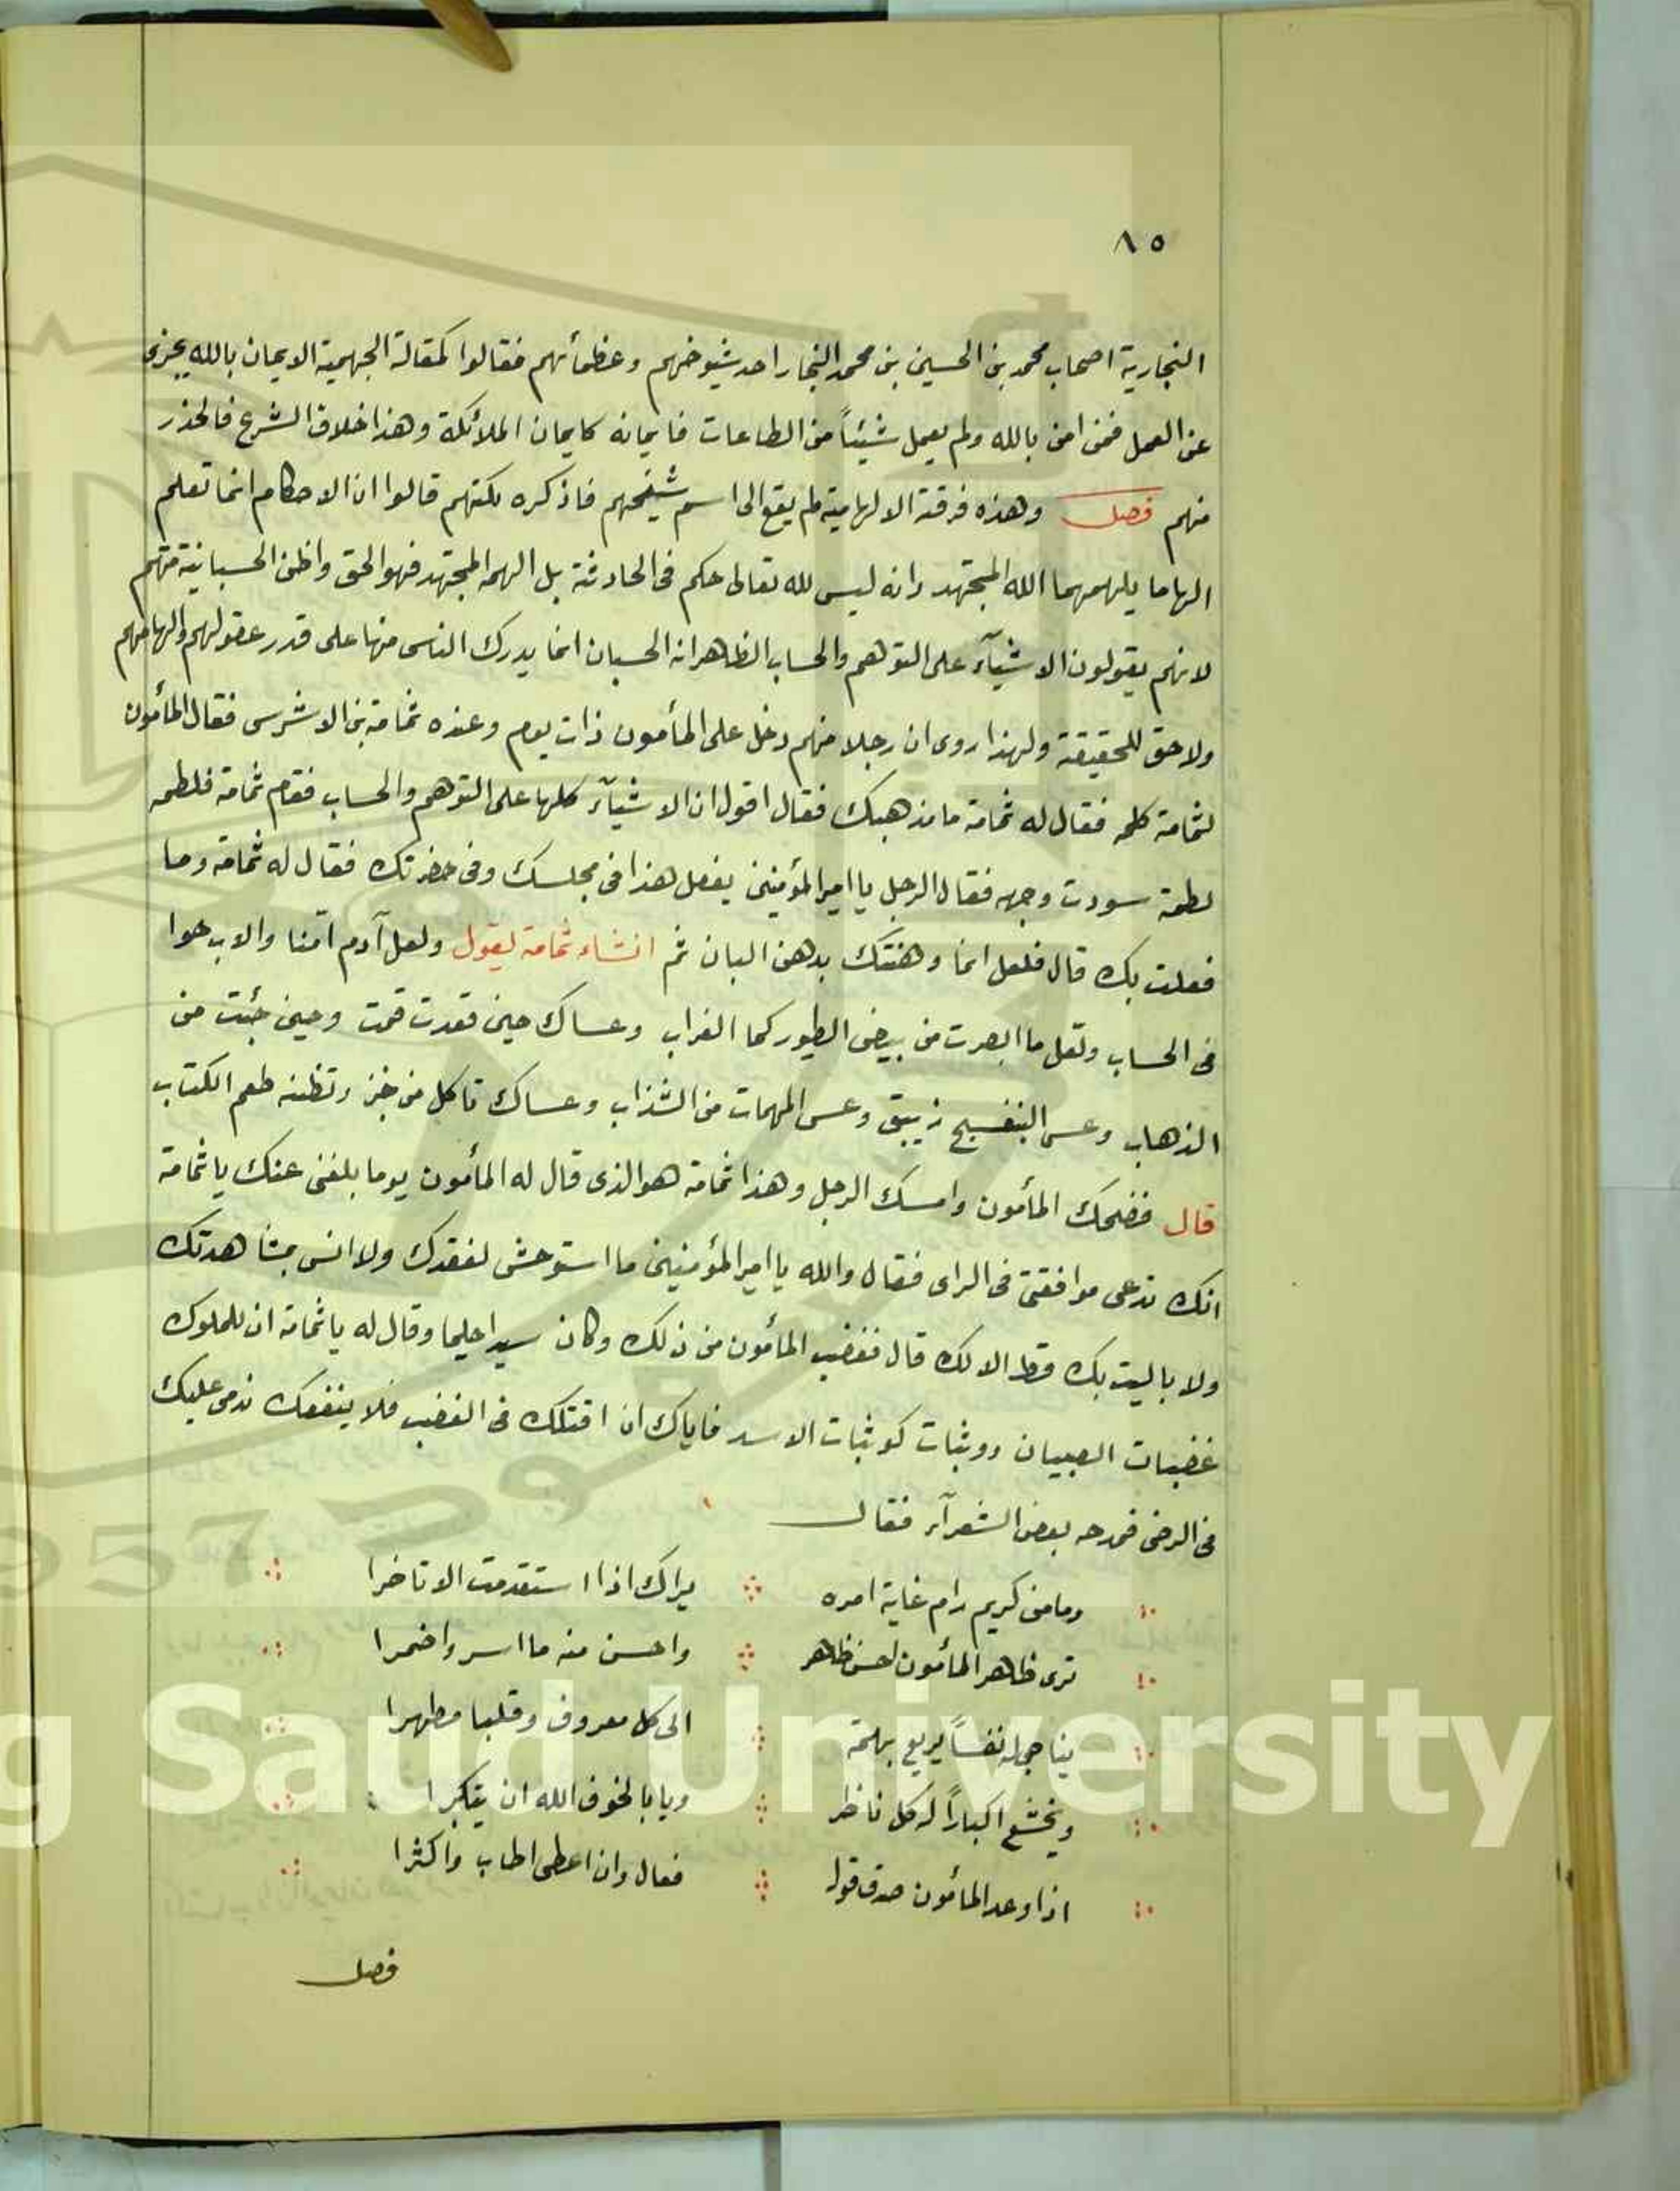 ٨٥
النجارية اصحاب محمد بن الحسين بن محمد النجار احد شيوخهم وعظمائهم فقالوا كمقالة الجهمية الايمان بالله يجزى
عن العمل فمن امن بالله ولم يعمل شيئاً من الطاعات فايمانه كايمان الملائكة وهذا خلاف الشرع فالحذر
منهم فصل وهذه فرقة الالهامية لم يقع الى اسم شيخهم فاذكره لكنهم قالوا ان الاحكام انما تعلم
الهاما يلهمهما الله المجتهد وانه ليس لله تعالى حكم فى الحادثة بل الهمه المجتهد فهو الحق واظن الحسبانية منهم
لانهم يقولون الاشيآء على التوهم والحساب الظاهر انه الحسبان انما يدرك الناس منها على قدر عقولهم والهامهم
ولا حق للحقيقة ولهذا روى ان رجلا منهم دخل على المأمون ذات يوم وعنده ثمامة بن الاشرس فقال المأمون
لثمامة كلمه فقال له ثمامة ما مذهبك فقال اقول ان الاشيآء كلها على التوهم والحساب فقام ثمامة فلطمه
لطمة سودت وجهه فقال الرجل يا امير المؤمنين يفعل هذا فى مجلسك وفى حضرتك فقال له ثمامة وما
فعلت بك قال فلعل انما دهنتك بدهن البان ثم انشاء ثمامة يقول ولعل آدم امنا والاب حوا
فى الحساب ولعل ما ابصرت من بيض الطيور كما الغراب وعساك حين قعدت قمت وحين جئت من
الذهاب وعسى البنفسج زيبق وعسى المهمات من الشذاب وعساك تاكل من خبز وتظنه طعم الكتاب
قال فضحك المأمون وامسك الرجل وهذا ثمامة هو الذى قال له المأمون يوما بلغنى عنك يا ثمامة
انك تدعى موافقتى فى الراى فقال والله يا امير المؤمنين ما استوحش لفقدك ولا انس بمشاهدتك
ولا باليت بك قط الا لك قال فغضب المأمون من ذلك وكان سيدا حليما وقال له يا ثمامة ان للملوك
غضبات الصبيان ووثبات كوثبات الاسد فاياك ان اقتلك فى الغضب فلا ينفعك ندمى عليك
فى الرضى فمدحه بعض الشعرآء فقال
وما من كريم رام غاية امره يراك اذا استقدمت الا تاخرا
ترى ظاهر المأمون احسن ظاهر واحسن منه ما اسر واضمرا
يناجى له نفساً يريع بهمة الى كل معروف وقلبا مطهرا
ويخشع اكباراً له كل ناظر ويابا لخوف الله ان يتكبرا
اذا وعد المأمون صدق قوله فعال وان اعطى اطاب واكثرا
فصل
King Saud University
1957